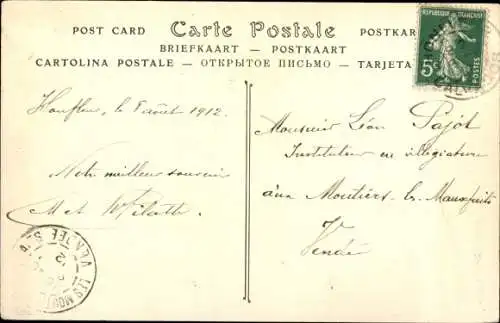 POST CARD — Carte Postale — POSTKAR
BRIEFKAART — POSTKAART
CARTOLINA POSTALE — ОТКРЫТОЕ ПИСЬМО — TARJETA
5c
Honfleur, le 8 août 1912.
Notre meilleur souvenir
M et
Monsieur Léon Pajot
Instituteur en villégiature
aux Moutiers les Mauxfaits
Vendée
VENDÉE